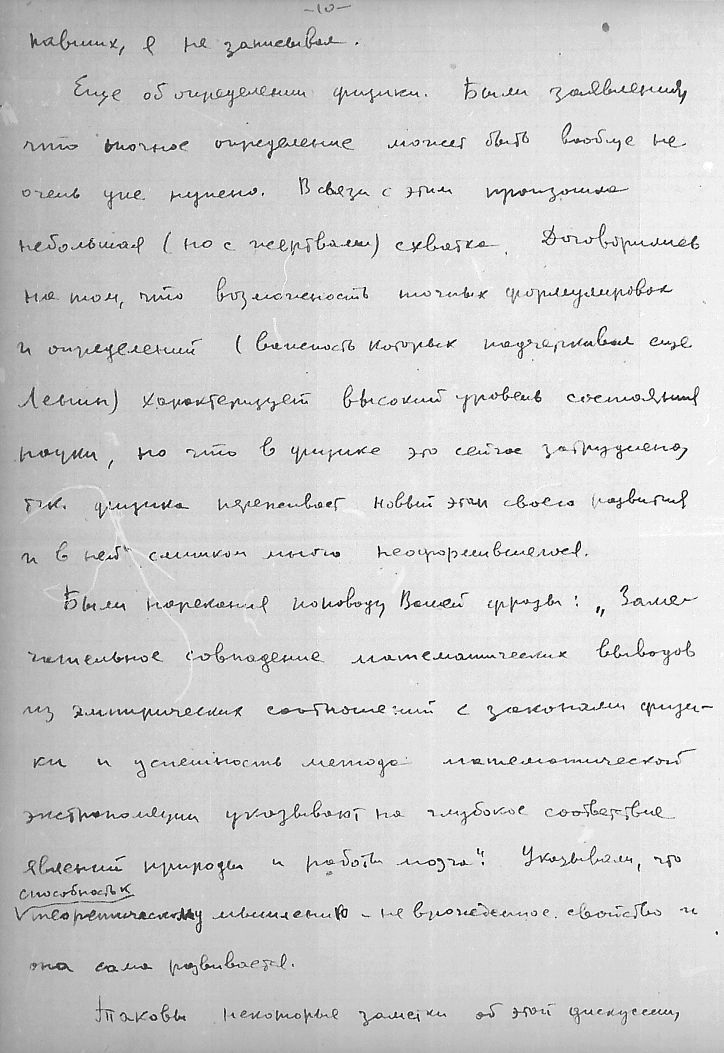 -10-
павших, я не записывал.
Еще об определении физики. Были заявления,
что точное определение может быть вообще не
очень уже нужно. В связи с этим произошла
небольшая (но с жертвами) схватка. Договорились
на том, что возможность точных формулировок
и определений (важность которых подчеркивал еще
Ленин) характеризует высокий уровень состояния
науки, но что в физике это сейчас затруднено,
т.к. физика переживает новый этап своего развития
и в ней слишком много неоформившегося.
Были нарекания по поводу Вашей фразы: „Заме-
чательное совпадение математических выводов
из эмпирических соотношений с законами физи-
ки и успешность метода математической
экстраполяции указывают на глубокое соответствие
явлений природы и работы мозга". Указывали, что
способность к
теоретическому мышлению - не врожденное свойство и
она сама развивается.
Таковы некоторые заметки об этой дискуссии,